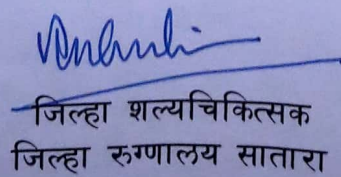 जिल्हा शल्यचिकित्सक
जिल्हा रुग्णालय सातारा